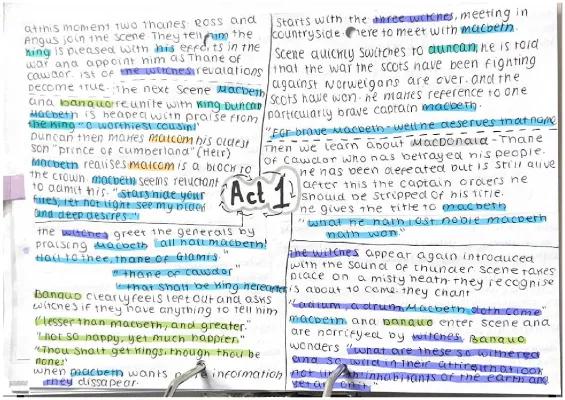 Act 1
Starts with the three witches, meeting in
countryside. there to meet with macbeth
Scene quickly switches to duncan, he is told
that the war the scots have been fighting
against norweigans are over. and the
scots have won. he makes reference to one
particularly brave captain macbeth.
"For brave macbeth- well he deserves that name
Then we learn about MacDonald - Thane
of Cawdor who has betrayed his people.
he has been defeated but is still alive
after this the captain orders he
should be stripped of his title.
he gives the title to macbeth
"what he hath lost noble macbeth
hath won."
the witches appear again introduced
with the sound of thunder scene takes
place on a misty heath they recognise
is about to come. they chant
"a drum, a drum, Macbeth doth come"
macbeth and banquo enter scene and
are horrifyed by witches. Banquo
wonders "what are these so withered
and so wild in their attire, that look
not like th inhabitants of the earth and
yet are on't"
the witches greet the generals by
praising macbeth "all hail macbeth!
hail to thee, thane of Glamis"
"thane of cawdor"
"that shall be king hereafter
Banquo clearly feels left out and asks
witches if they have anything to tell him
"lesser than macbeth, and greater."
"not so happy, yet much happier."
"Thou shalt get kings, though thou be
none:"
when macbeth wants information
they dissapear
at this moment two thanes: Ross and
Angus join the scene They tell him the
king is pleased with his efforts in the
war and appoint him as Thane of
cawdor. 1st of the witches revalations
become true. The next scene macbeth
and banquo reunite with King Duncan
macbeth is heaped with praise from
the king "O worthiest cousin!"
Duncan then makes malcom his oldest
son "prince of cumberland" (Heir)
Macbeth realises malcom is a block to
the crown. macbeth seems reluctant
to admit this. "stars hide your
fires, let not light see my black
and deep desires."